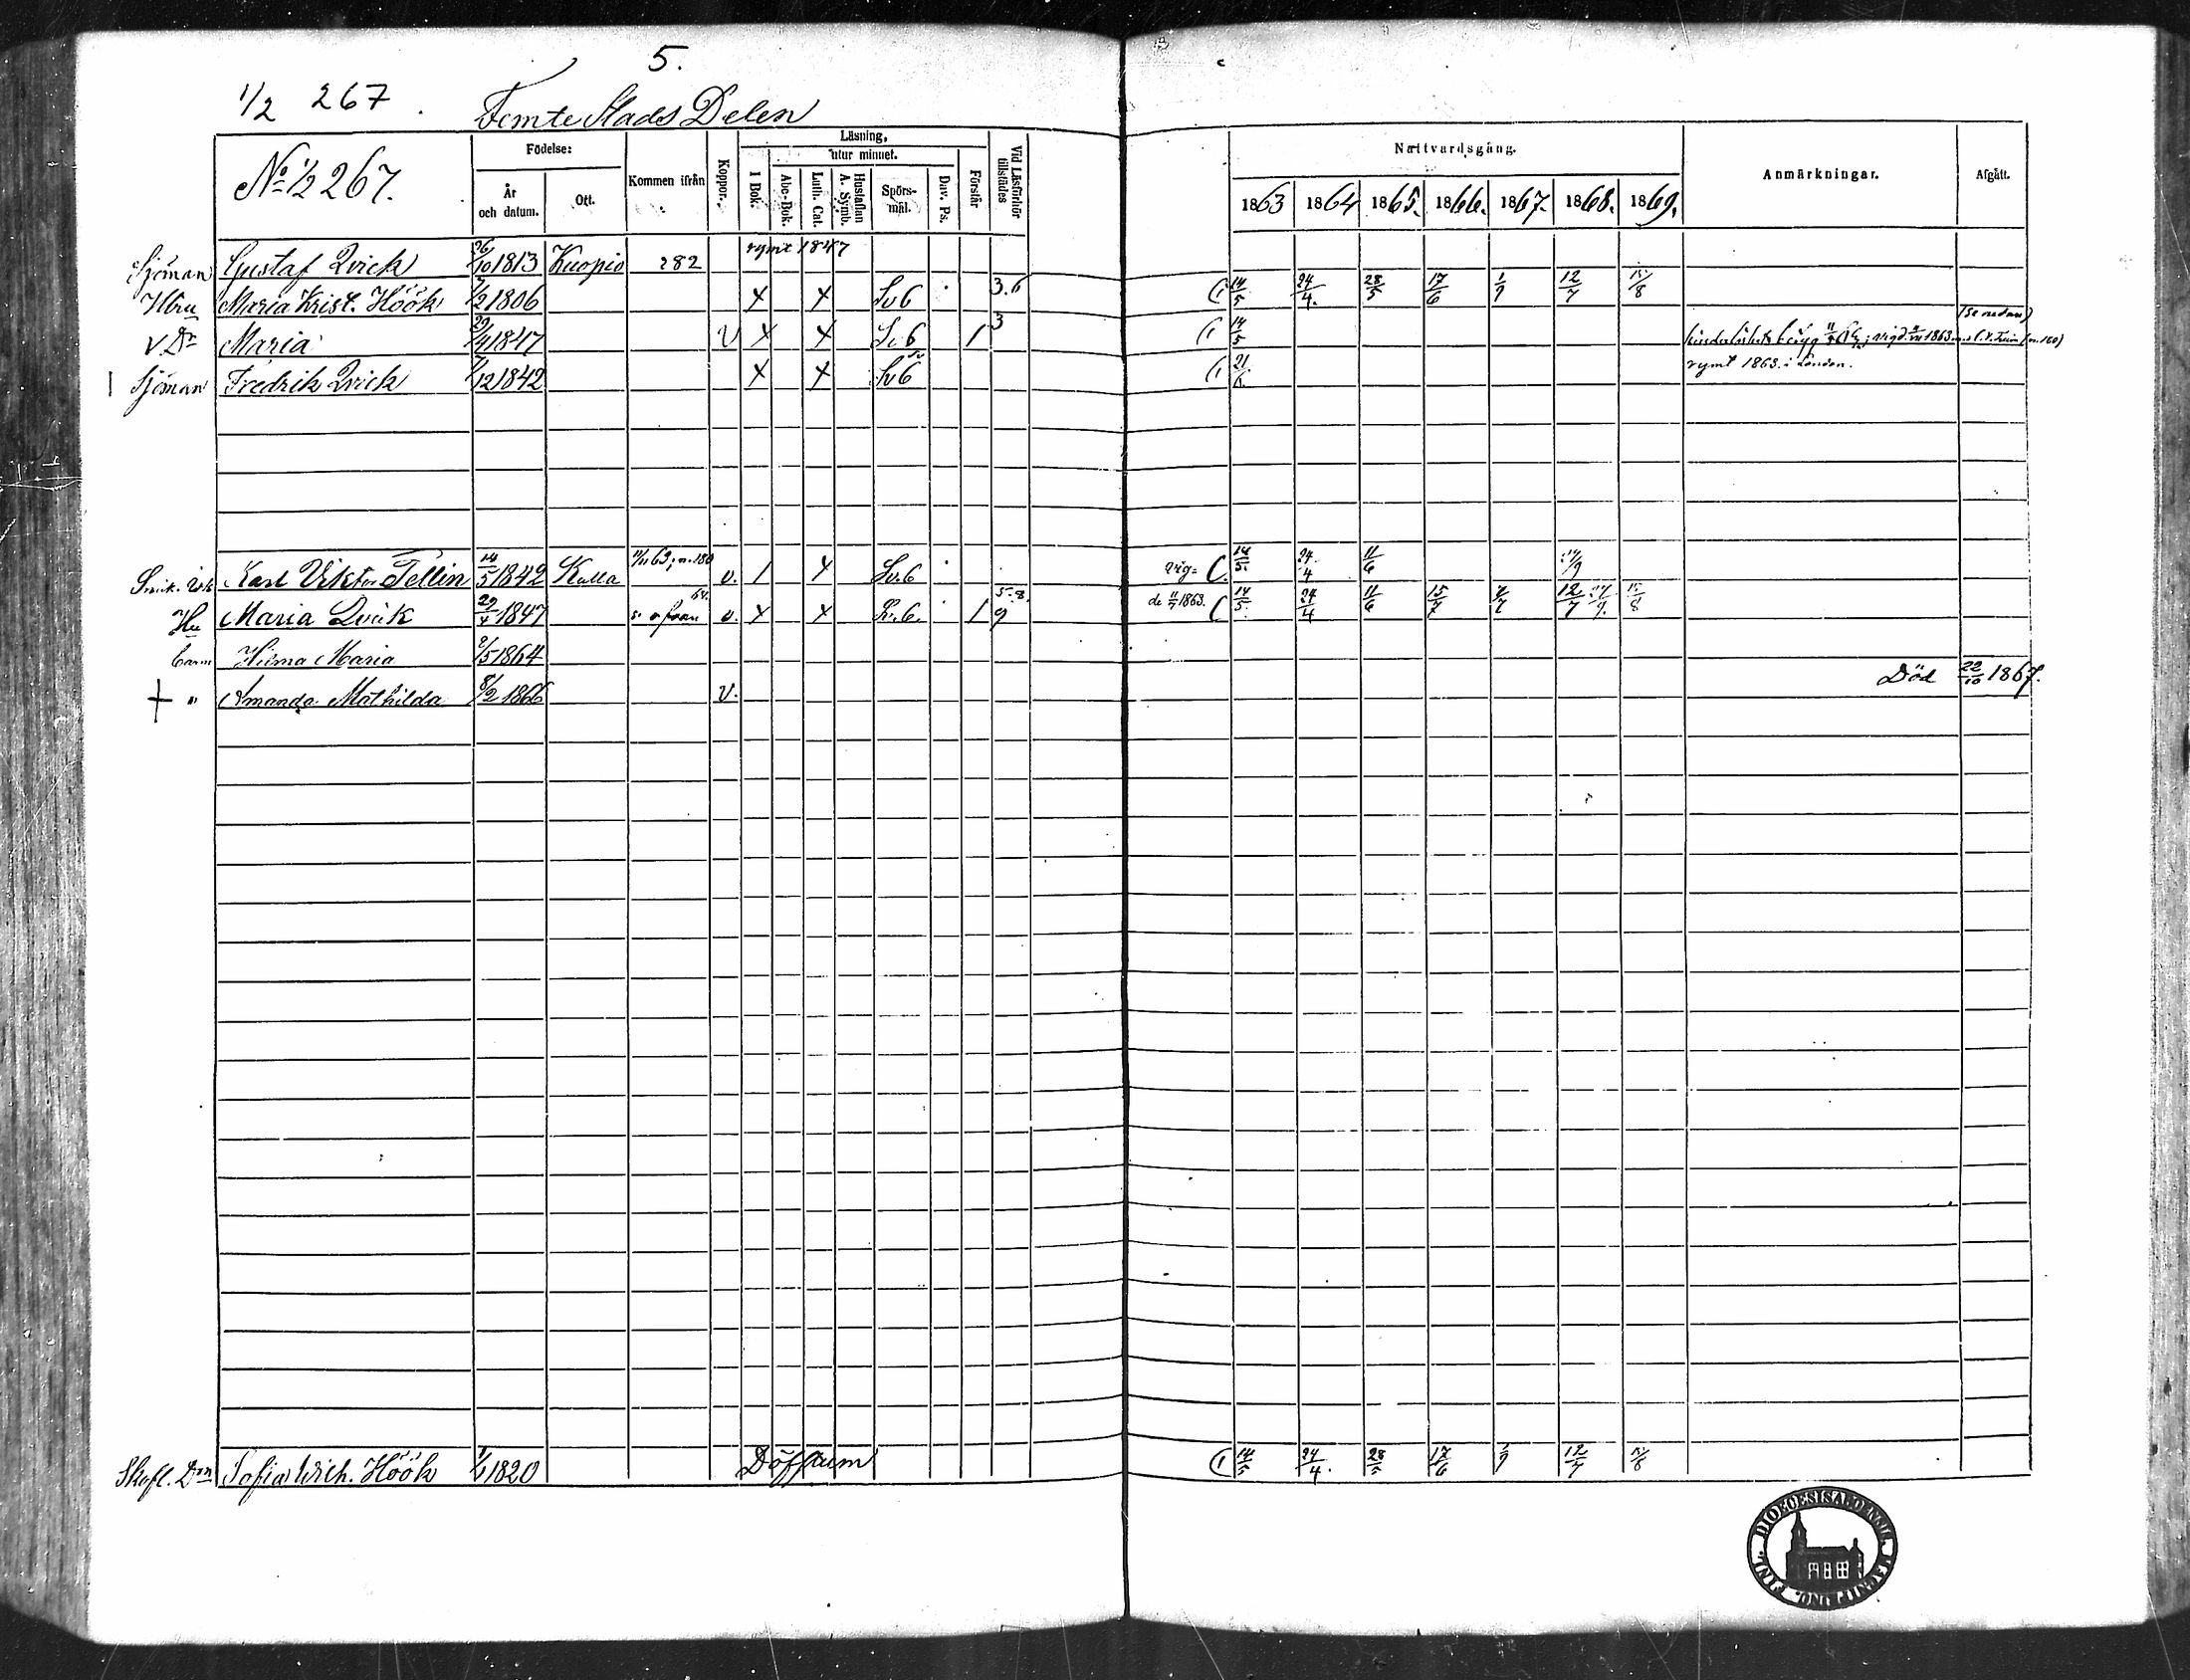 5.
1/2 267. Femte Stads Delen
No 1/2 267.
Födelse:
År och datum.
Ort.
Kommen ifrån
Koppor.
Läsning,
utur minnet.
I Bok.
Abc-Bok.
Luth. Cat.
Hustaflan A. Symb.
Spörs-mål.
Dav. Ps.
Förstår
Vid Läsförhör tillstädes
Nattvardsgång.
1863 1864 1865. 1866. 1867. 1868. 1869.
Anmärkningar.
Afgått.
Sjöman Gustaf Qvick 26/10 1813 Kuopio 282 rymt 1847
Hbru Maria Krist. Höök 7/2 1806 X X Sv 6 3.6 14/5 24/4. 28/5 17/6 1/9 12/7 15/8
(se nedan)
v Dr Maria 29/4 1847 V X X Sv 6 1 3 14/5
Sjöman Fredrik Qvick 7/12 1842 X X Sv 6 21/6 rymt 1863. i London.
Karl Viktor Tellin 14/5 1842 Kalla 11/11 63; n. 180 v. 1 X Sv. 6 vig= 14/5 24/4 11/6 27/9
Hu Maria Qvick 29/4 1847 v. X X Sv. 6. 1 5.8. 9 de 11/7 1863. 14/5 24/4 11/6 15/7 7/7 12/7 27/9. 15/8
Barn Hilma Maria 2/5 1864
+ " Amanda Mathilda 8/2 1866 V. Död 22/10 1867.
Sofia Wilh. Höök 1/1 1820 Döfstum 14/5 24/4. 28/5 17/6 1/9 12/7 15/8